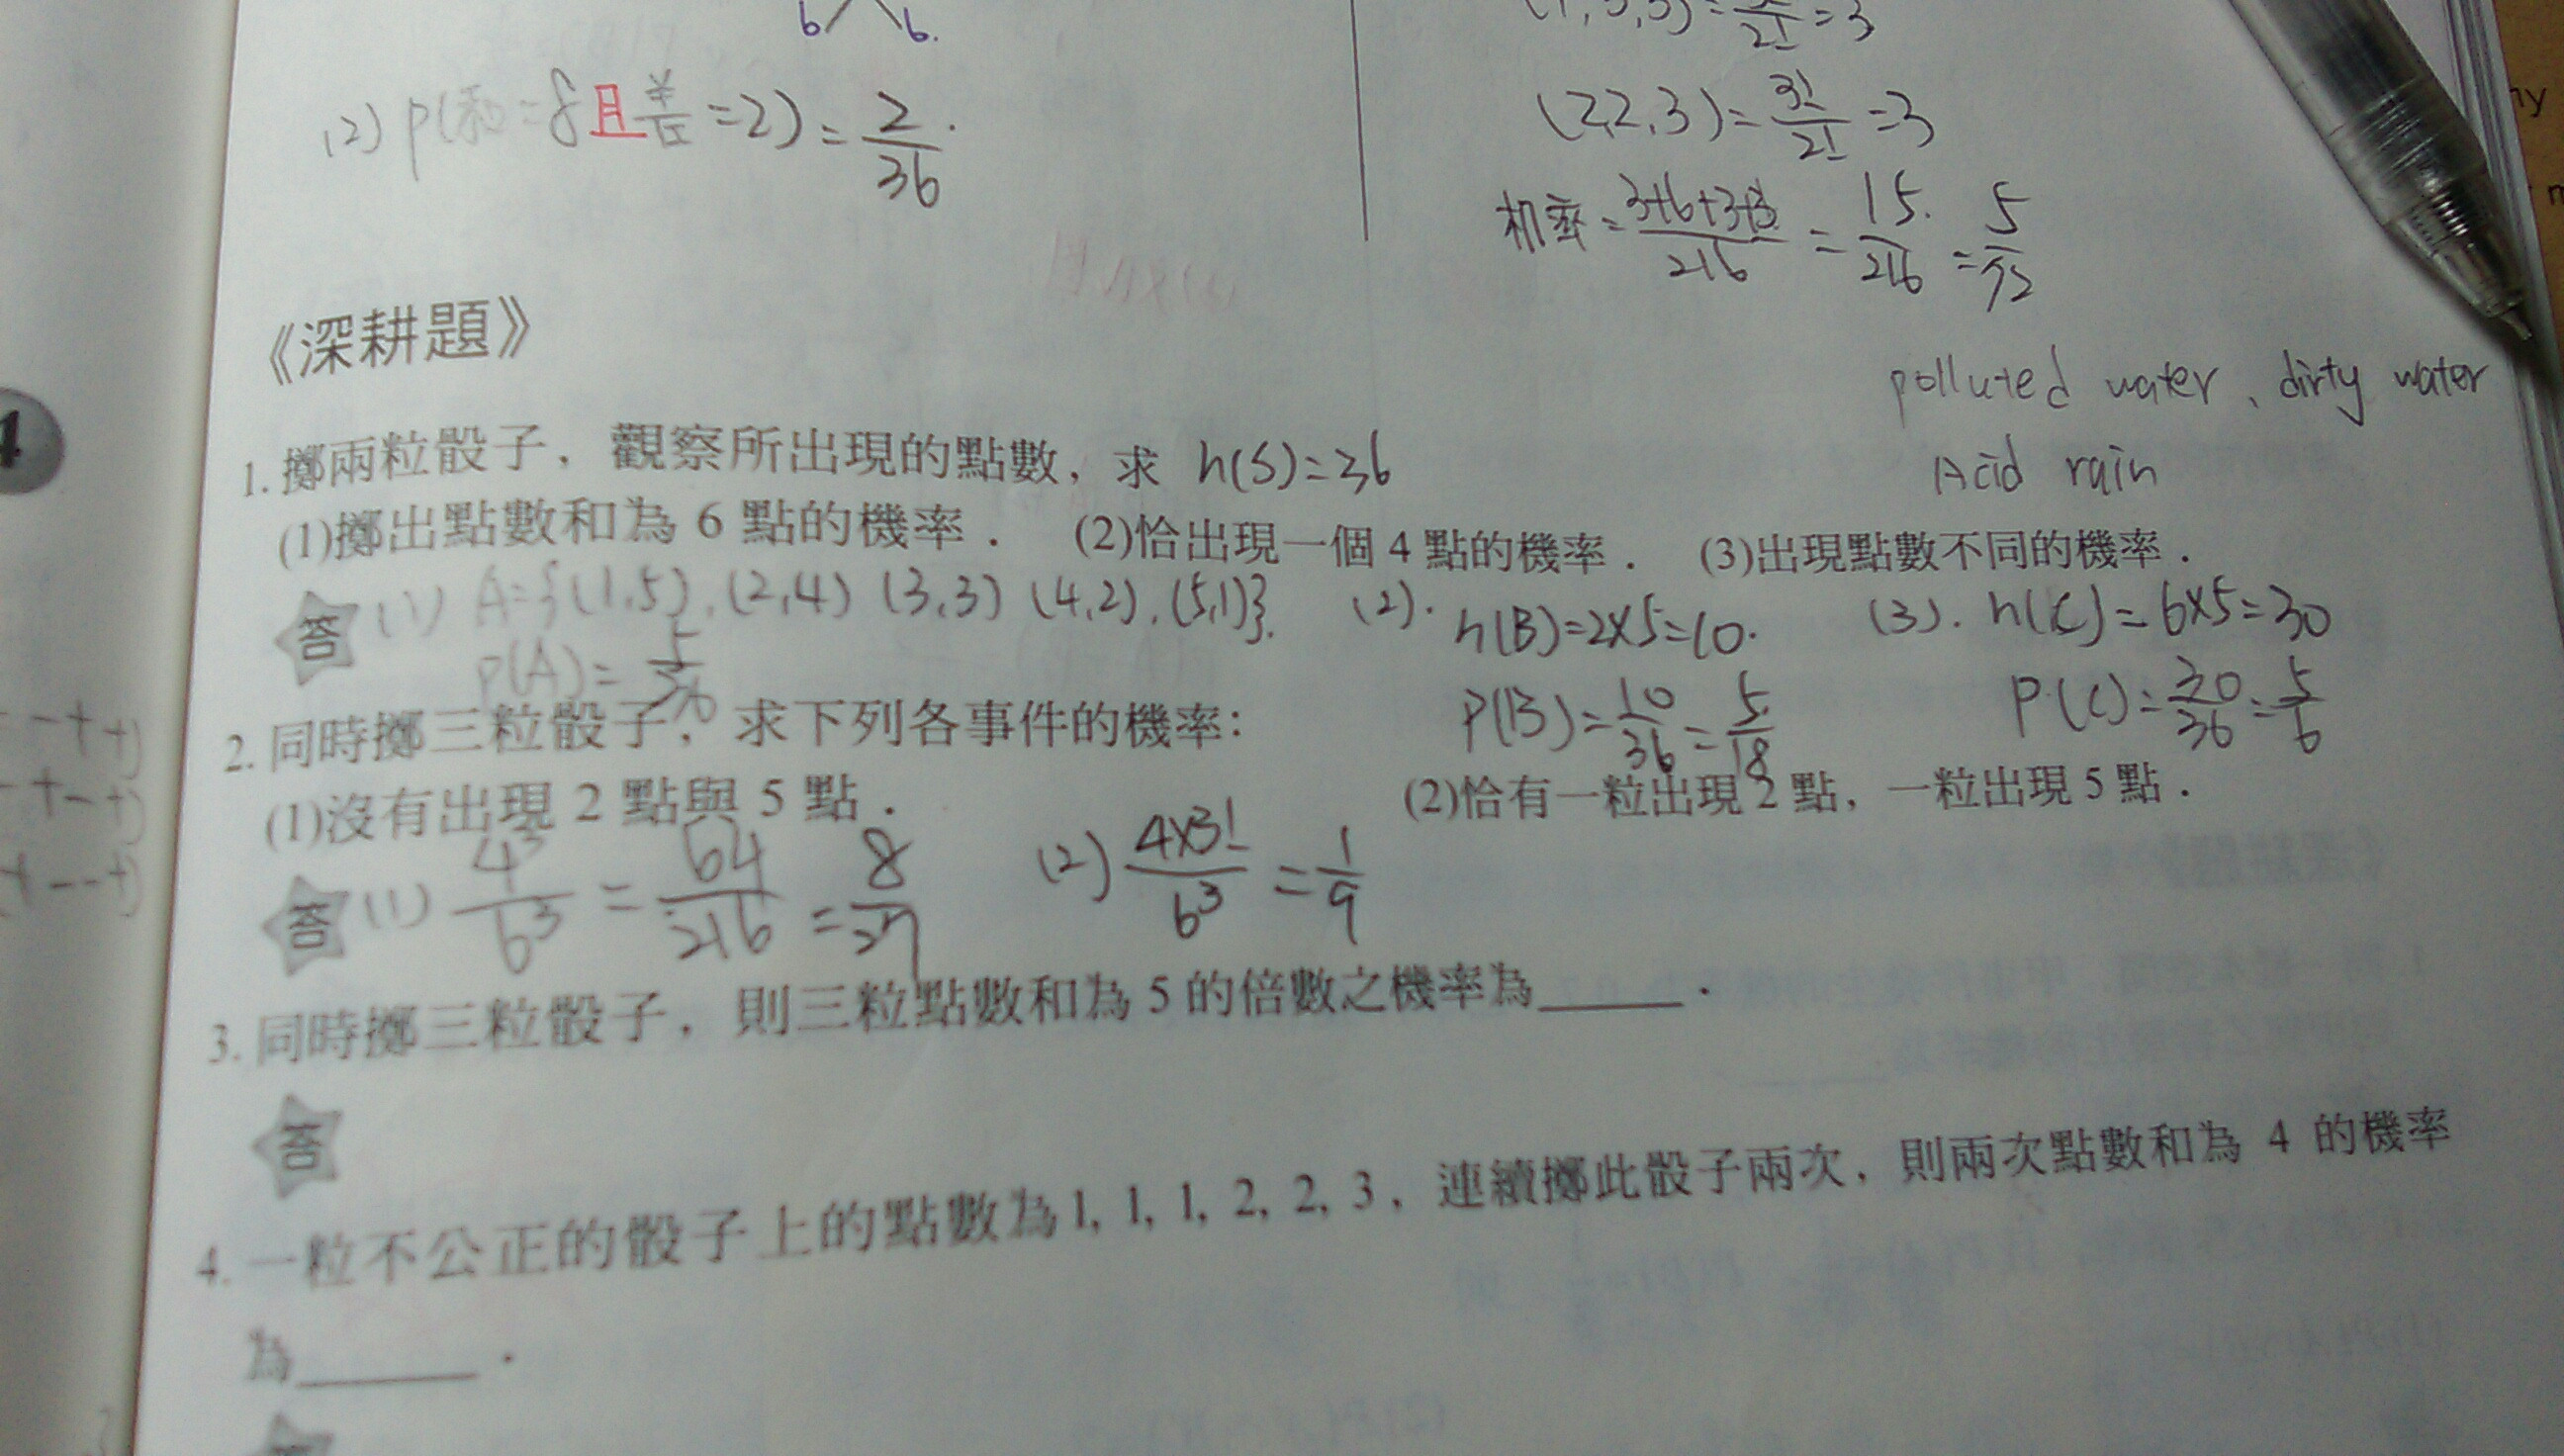 6 6.
(2) P(和=8且差=2)=2/36.
(2,2,3)=3!/2!=3
机率=3+6+3+3/216=15/216=5/72
《深耕題》
polluted water、dirty water
Acid rain
1.擲兩粒骰子，觀察所出現的點數，求 n(S)=36
(1)擲出點數和為 6 點的機率． (2)恰出現一個 4 點的機率． (3)出現點數不同的機率．
答 (1) A={(1,5),(2,4) (3,3) (4,2),(5,1)}. (2). n(B)=2×5=10. (3). n(C)=6×5=30
P(A)=5/36 P(B)=10/36=5/18 P(C)=30/36=5/6
2.同時擲三粒骰子，求下列各事件的機率：
(1)沒有出現 2 點與 5 點． (2)恰有一粒出現 2 點，一粒出現 5 點．
答 (1) 4³/6³=64/216=8/27 (2) 4×3!/6³=1/9
3.同時擲三粒骰子，則三粒點數和為 5 的倍數之機率為______．
答
4.一粒不公正的骰子上的點數為 1, 1, 1, 2, 2, 3，連續擲此骰子兩次，則兩次點數和為 4 的機率
為______．